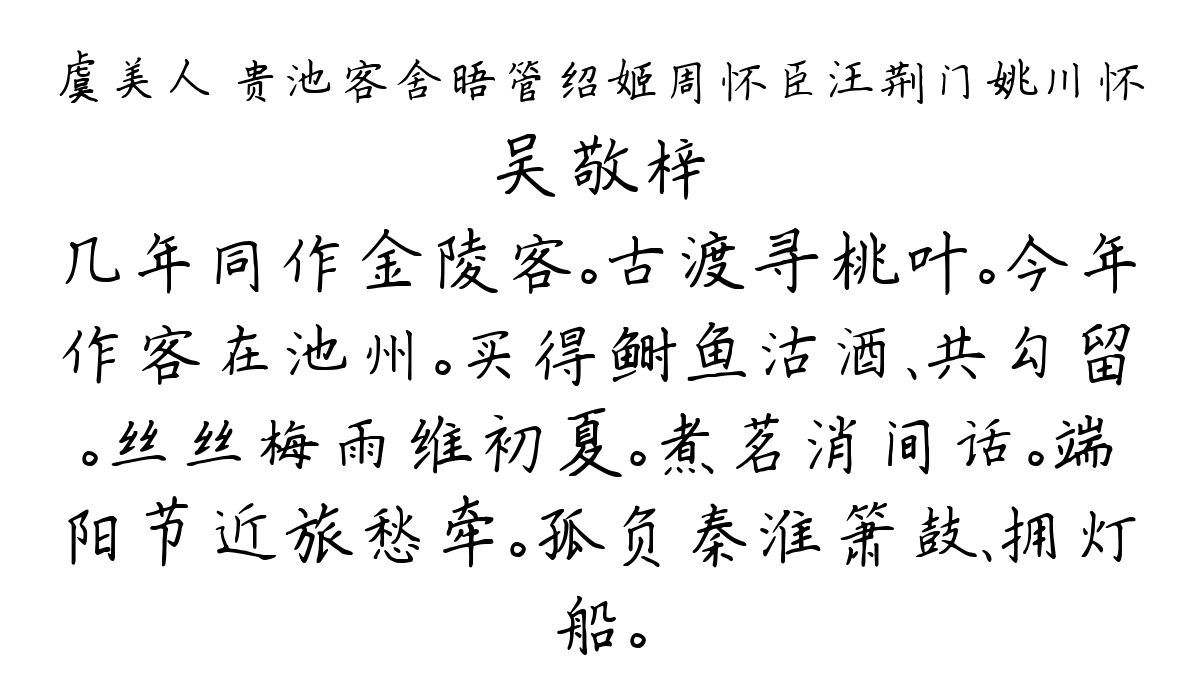 虞美人 贵池客舍晤管绍姬周怀臣汪荆门姚川怀
吴敬梓
几年同作金陵客。古渡寻桃叶。今年
作客在池州。买得鲥鱼沽酒、共勾留
。丝丝梅雨维初夏。煮茗消间话。端
阳节近旅愁牵。孤负秦淮箫鼓、拥灯
船。